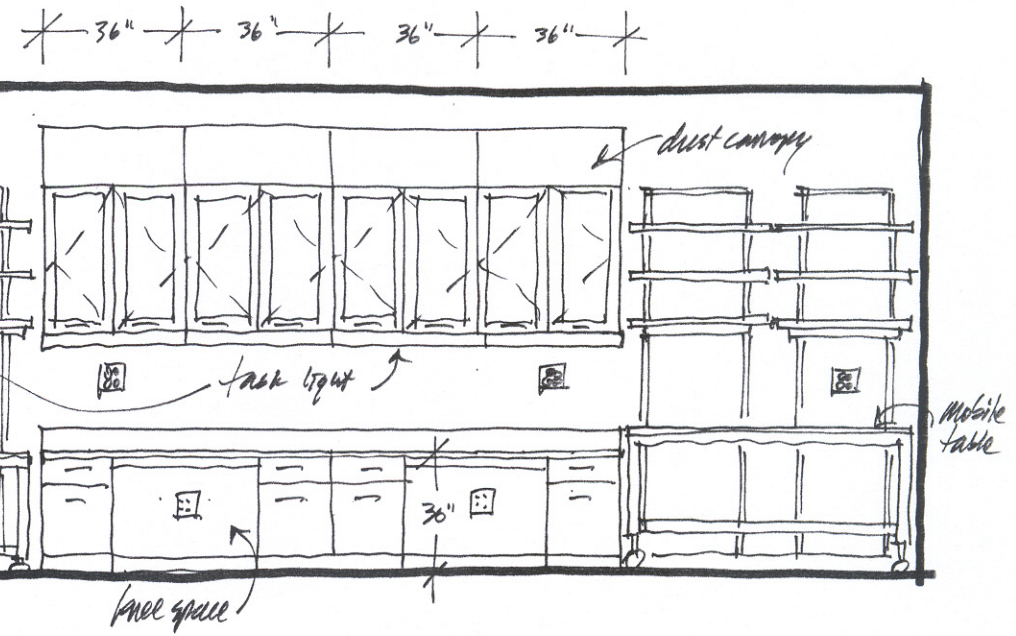 36" 36" 36" 36"
dust canopy
task light
mobile
table
36"
knee space